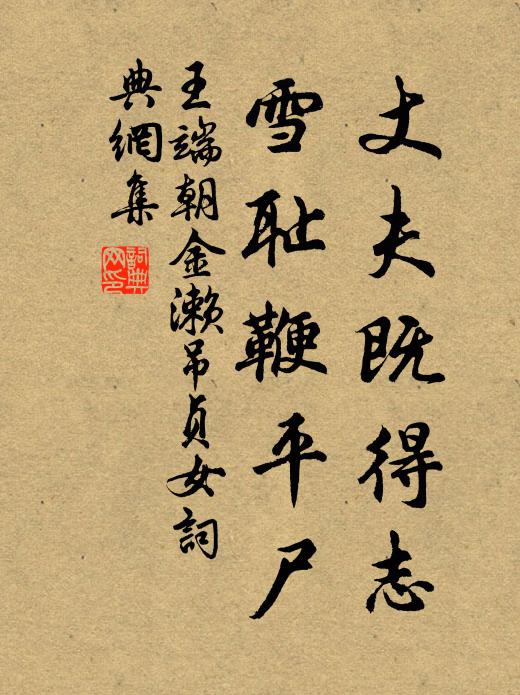 丈夫既得志
雪耻鞭平尸
王端朝金濑吊贞女词
典網集
詞典網印